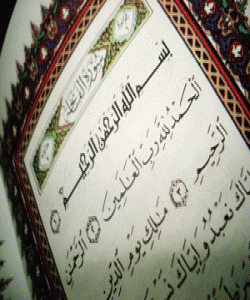 سورة الفاتحة
بِسْمِ اللَّهِ الرَّحْمَٰنِ الرَّحِيمِ ١
الْحَمْدُ لِلَّهِ رَبِّ الْعَالَمِينَ ٢ الرَّحْمَٰنِ
الرَّحِيمِ ٣ مَالِكِ يَوْمِ الدِّينِ
إِيَّاكَ نَعْبُدُ وَإِيَّاكَ